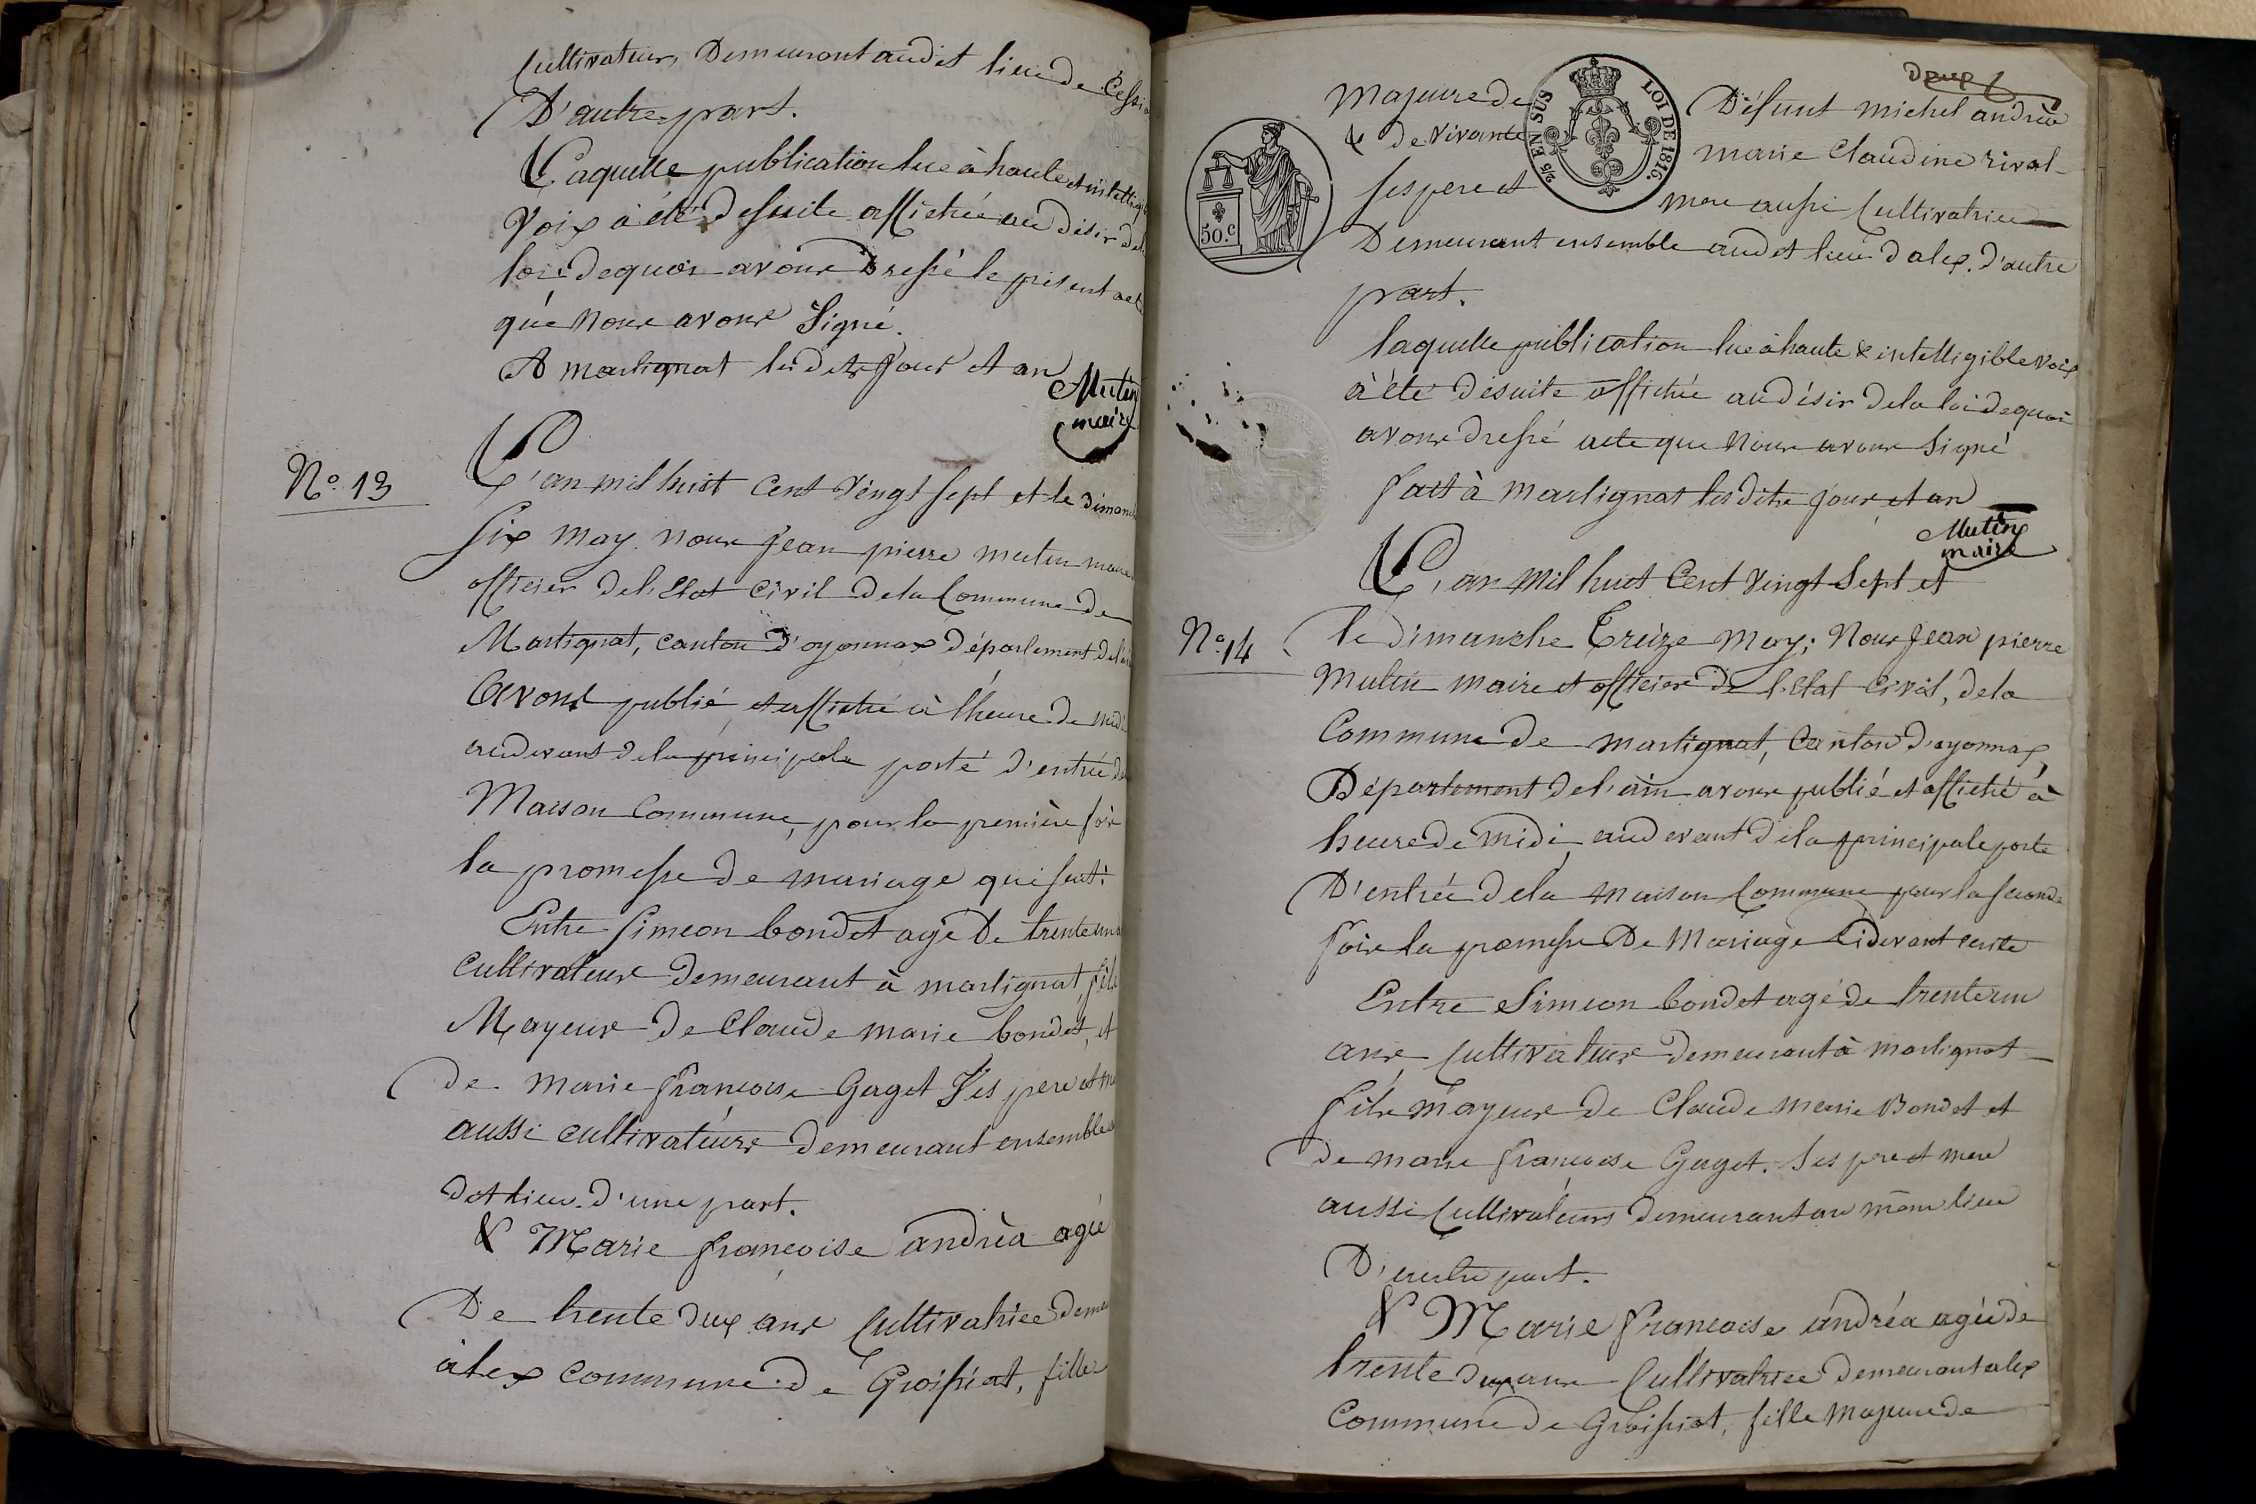 Cultivateurs, Demeurant audit lieu de Cessia
D'autre part.
Laquelle publication lue à haute et intelligible
Voix à été desuite affichée au désir de la
loi: dequoi avons Dressé le présent acte
que Nous avons Signé.
A martignat les dits jour et an
Mutin
maire
No. 13
L'an mil huit Cent Vingt Sept et le dimanche
Six May. nous Jean pierre mutin maire
officier del'Etat Civil dela Commune de
Martignat, canton d'oyonnax Département del'ain
Avons publié et affiché à l'heure de midi
audevant dela principale porte d'entrée de
Maison Commune, pour la première fois
la promesse de mariage qui suit:
Entre Simeon bondet agé De trente un
Cultivateur demeurant à martignat, fils
Mayeur de Claude marie bondet, et
de marie françoise Gaget Ses pere et me
aussi cultivateurs demeurant ensemble
dit lieu. d'une part.
& Marie françoise andrèa agée
De trente deux ans Cultivatrice deme
à lex commune de Groissiat, fille
deux
Majeure de Défunt michel andrèa
& de vivante marie Claudine rival
ses pere et mere aussi Cultivatrice
Demeurant ensemble audit lieu d'alex. d'autre
part.
2/5 EN SUS LOI DE 1816.
50.c
laquelle publication lue à haute & intelligible voix
à été desuite affichée au désir dela loi dequoi
avons dressé acte que Nous avons Signé
fait à Martignat les dits jour et an
Mutin
maire
L'an mil huit Cent Vingt Sept et
No. 14
le dimanche Treize May; Nous Jean pierre
Mutin maire et officier de l'Etat Civil, dela
Commune de martignat, Canton d'oyonnax,
Département del'ain avons publié et affiché à
heure de midi audevant dela principale porte
D'entrée dela Maison Commune pour la seconde
fois la promesse De Mariage Cidevant
Entre Simeon bondet agé de trente un
ans, Cultivateur demeurant à martignat
fils mayeur de Claude Marie Bondet et
de marie françoise Gaget. Ses pre et mere
aussi Cultivateurs demeurant au même lieu
D'autre part.
& Marie francoise andréa agée de
trente deux ans Cultivatrice demeurant alex
Commune de Groissiat, fille Majeure de